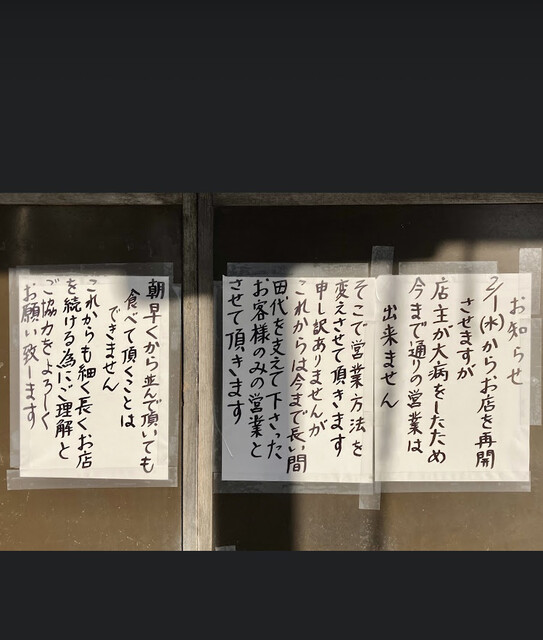 お知らせ
2/1(水)からお店を再開
させますが
店主が大病をしたため
今まで通りの営業は
出来ません
そこで営業方法を
変えさせて頂きます
申し訳ありませんが
これからは今まで長い間
田代を支えて下さった
お客様のみの営業と
させて頂きます
朝早くから並んで頂いても
食べて頂くことは
できません
これからも細く長くお店
を続ける為にご理解と
ご協力をよろしく
お願い致します